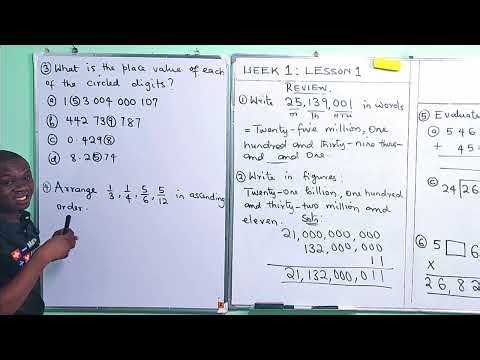 ③ What is the place value of each
of the circled digits?
ⓐ 1⑤3 004 000 107
ⓑ 442 73⑨ 787
ⓒ 0.429⑧
ⓓ 8.2⑤74
④ Arrange 1/3, 1/4, 5/6, 5/12 in ascending
order.
WEEK 1: LESSON 1
REVIEW.
① Write 25,139,001 in words
m Th HTU
= Twenty-five million, One
hundred and thirty-nine thous-
and and One.
② Write in figures:
Twenty-One billion, One hundred
and thirty-two million and
eleven. Soln:
21,000,000,000
132,000,000
11
21,132,000,011
⑤ Evaluate
ⓐ 5 4 6
+ 4 5
ⓒ 24 26
⑥ 5 □ 6
×
2 6, 8 2